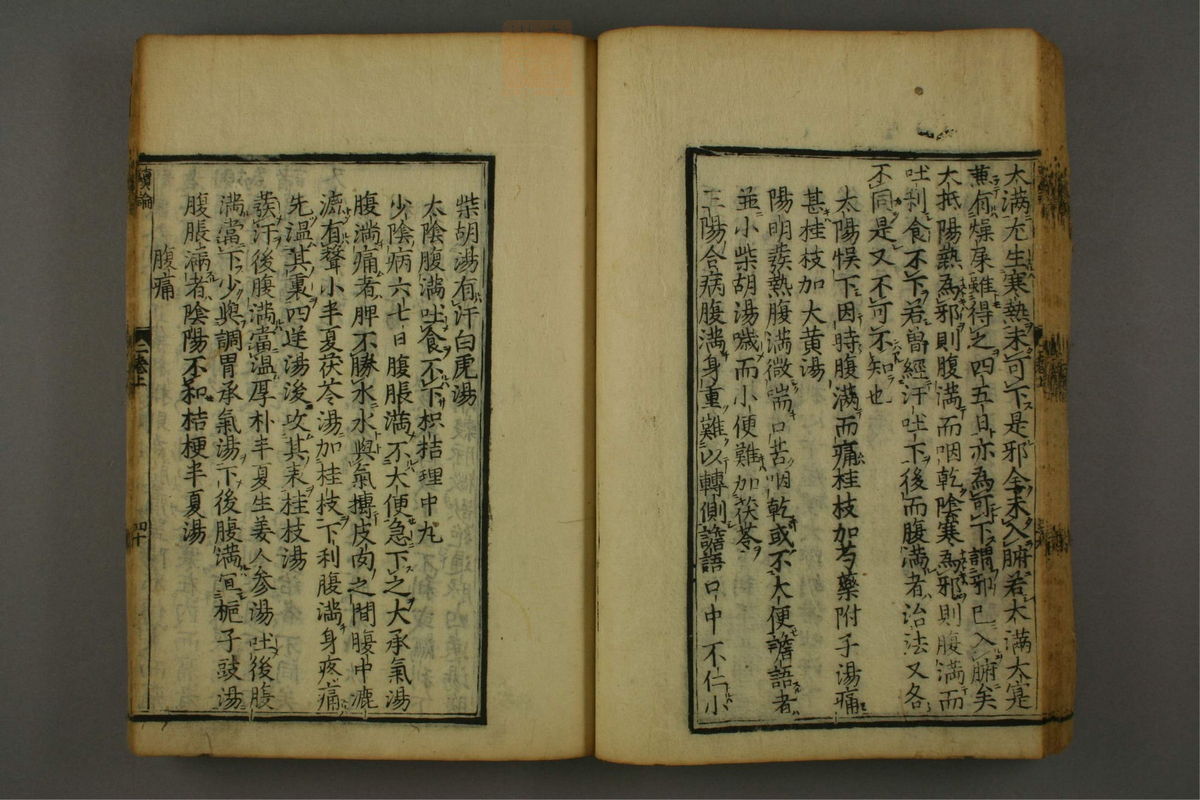 太滿尢生寒熱未可下是邪全未入腑若太滿太寔
兼有燥屎雖得之四五日亦為可下謂邪已入腑矣
大抵陽熱為邪則腹滿而咽乾陰寒為邪則腹滿而
吐利食不下若曽經汗吐下後而腹滿者治法又各
不同是又不可不知也
太陽悞下因時腹滿而痛桂枝加芍藥附子湯痛
甚桂枝加大黄湯
陽明發熱腹滿微喘口苦咽乾或不大便譫語者
並小柴胡湯噦而小便難加茯苓
三陽合病腹滿身重難以轉側譫語口中不仁小
柴胡湯有汗白虎湯
太陰腹滿吐食不下枳桔理中丸
少陰病六七日腹脹滿不大便急下之大承氣湯
腹滿痛者脾不勝水水與氣摶皮肉之間腹中漉
漉有聲小半夏茯苓湯加桂枝下利腹滿身疼痛
先温其裏四逆湯後攻其表桂枝湯
發汗後腹滿當温厚朴半夏生姜人參湯吐後腹
滿當下少與調胃承氣湯下後腹滿宜梔子豉湯
腹脹滿者陰陽不和桔梗半夏湯
腹痛
論
二卷上
四十